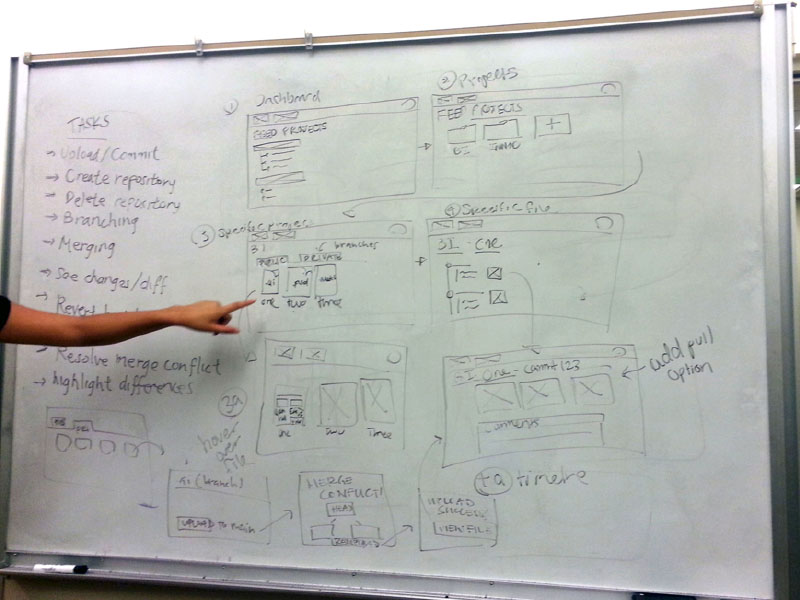 TASKS
→ Upload/Commit
→ Create repository
→ Delete repository
→ Branching
→ Merging
→ See changes/diff
→ Revert
→ Resolve merge conflict
→ highlight differences
1 Dashboard
FEED PROJECTS
2 Projects
FEED PROJECTS
+
3 Specific Project
branches
PRIVATE
one two three
4 Specific file
one
one two three
3a
hover over file
One - commit 123
comments
add pull
option
(branch)
UPLOAD to main
MERGE
CONFLICT!
HEAD
UPLOAD
SUCCESS
NEW FILE